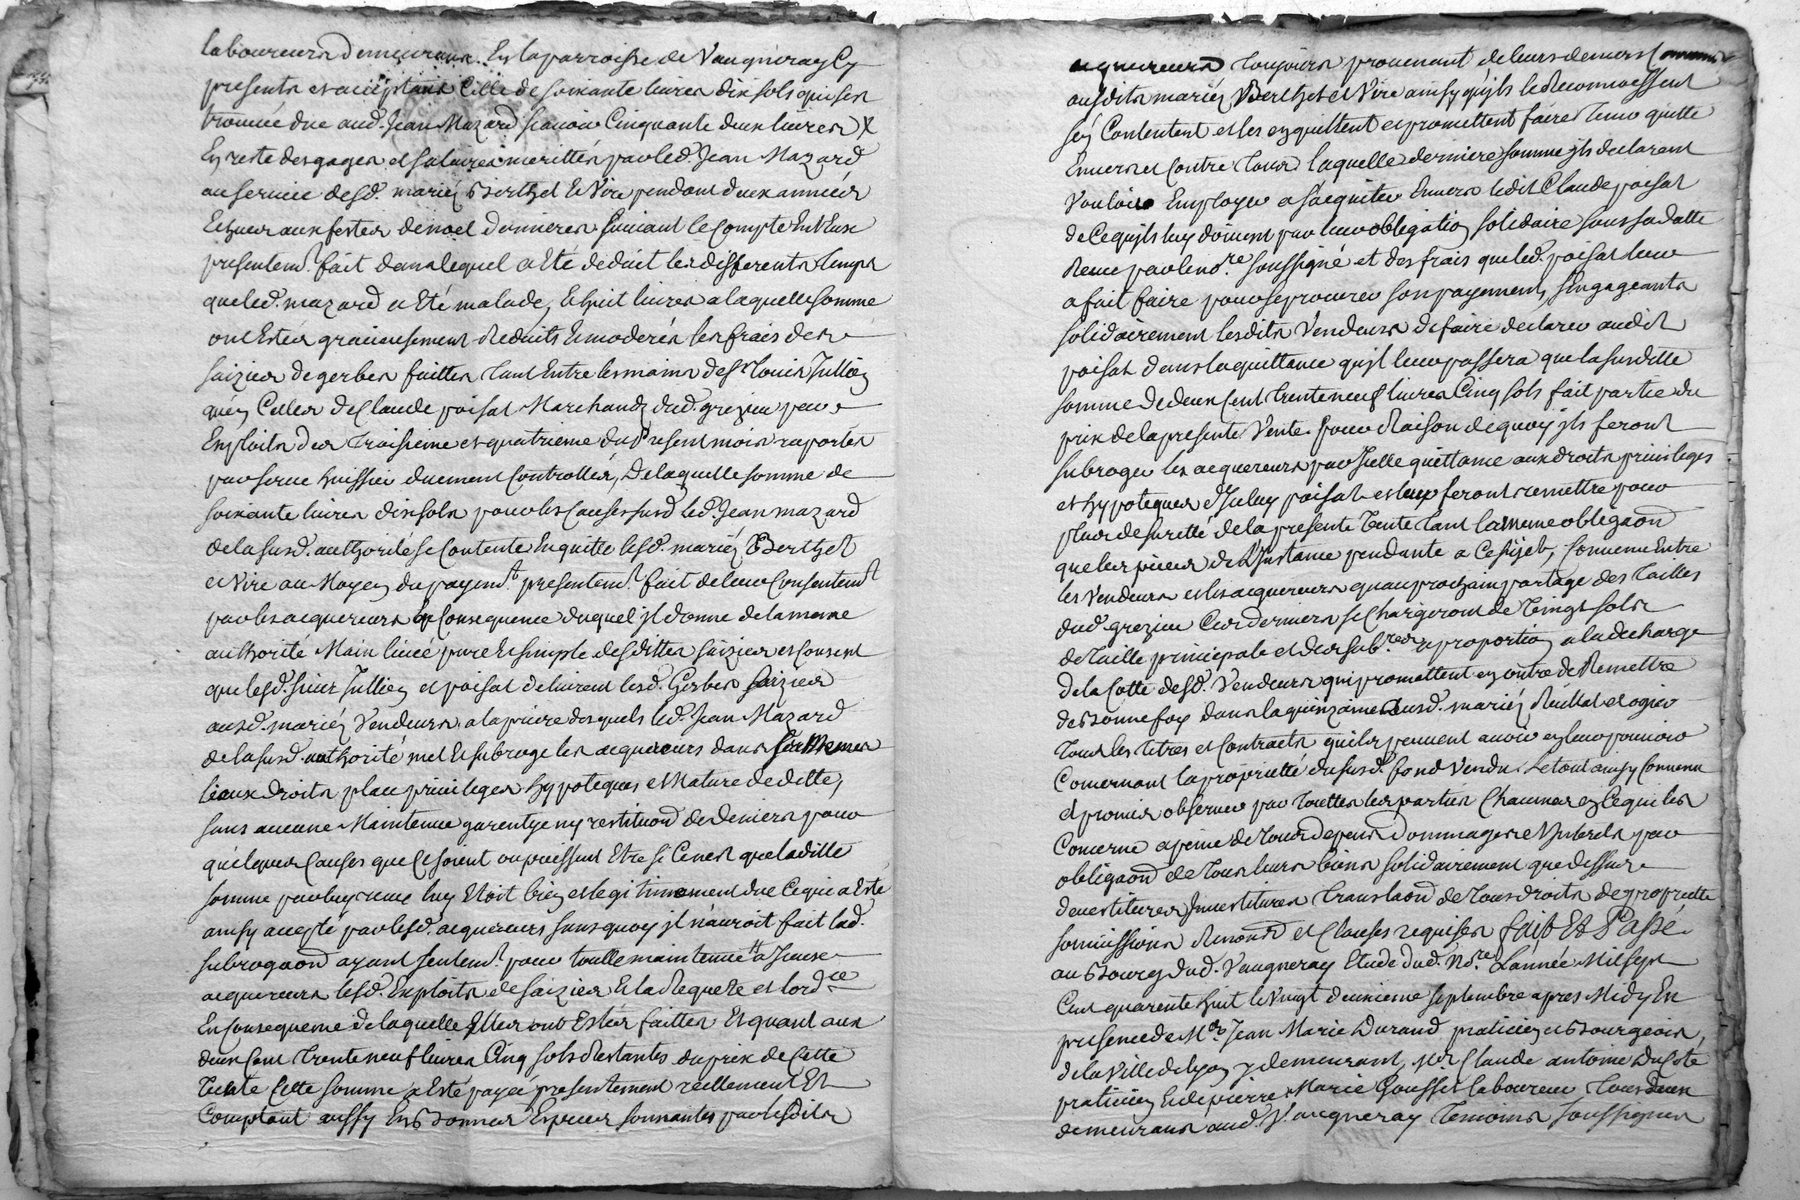 laboureurs demeurants En la parroisse de Vaugneray Cy
presents et acceptants Celle de soixante livres dix sols qui s'en
trouvée due aud. Jean Mazard scavoir Cinquante deux livres X
En reste des gages et salaires merittés par led. Jean Mazard
au service desd. mariéz Berthet et Vire pendant deux années
Echues aux festes de noel dernieres suivant le Compte Entreux
presentem.t fait dans lequel a Eté deduit les differents temps
que led. mazard a Eté malade, Et huit livres a laquelle somme
ont Estés gracieusement Reduits Et moderés les frais des
saizies de gerbes faittes tant Entre les mains de s.r Louis Jullien
qu'en Celles de Claude poisat Marchands dud. grezieu par
Exploits des troisieme et quatrieme du present mois raportés
par serve huissier duement Controllés, De laquelle somme de
soixante livres dix sols pour les Causes susd. led. Jean mazard
de la susd. authorité se Contente En quitte lesd. mariéz Berthet
et Vire au Moyen du payem.t presentem.t fait de leur Consentem.t
par les acquereurs En Consequence duquel il donne de la meme
authorité Main levée pure Et simple desdittes saizies et Consent
que lesd. sieur Jullien et poisat delivrent lesd. Gerbes saizies
ausd. mariéz Vendeurs a la priere desquels led. Jean Mazard
de la susd. authorité met Et subroge les acquereurs dans ses Memes
lieux droits place privileges hypoteques et Nature de dette,
sans aucune Maintenue garentye ny restituon de deniers pour
quelques Causes que Ce soient ou puissent Etre si Ce n'est que laditte
somme par luy reçue luy Etoit bien et legitimement due Ce qui a Esté
ainsy accepté par lesd. acquereurs sans quoy il n'auroit fait lad.
subrogaon ayant seulem.t pour toutte maintenue a Iceux
acquereurs lesd. Exploits de saizies Et la Requete et lord.ce
En Consequence de laquelle Elles ont Estés faittes Et quant aux
deux Cent trente neuf livres Cinq sols Restantes du prix de Cette
Vente Cette somme a Esté payée presentement reellement Et
Comptant aussy En Bonnes Especes sonnantes par lesdits
acquereurs toujours provenant de leurs deniers Communs
ausdits mariéz Berthet et Vire ainsy qu'ils le Reconnoissent
s'en Contentent et les en quittent et promettent faire tenir quitte
Envers et Contre tous laquelle derniere somme ils declarent
Vouloir Employer a s'acquiter Envers ledit Claude poisat
de Ce qu'ils luy doivent par leur obligation solidaire sous sa datte
Recue par le no.re soussigné et des frais que led. poisat leur
a fait faire pour se procurer son payement, s'engageants
solidairement lesdits Vendeurs de faire declarer audit
poisat dans la quittance qu'il leur passera que la susditte
somme de deux Cent trente neuf livres Cinq sols fait partie du
prix de la presente Vente. pour Raison de quoy ils feront
subroger les acquereurs par Icelle quittance aux droits privileges
et hypoteques d'Iceluy poisat et leur feront remettre pour
plus de suretté de la presente Vente tant la meme obligaon
que les pieces de l'Instance pendante a Ce sujet, Convenu Entre
les Vendeurs et les acquereurs qu'au prochain partage des tailles
dud. grezieu Ces derniers se Chargeront de Vingt sols
de taille principale et des sub.res a proportion a la decharge
de la Cotte desd. Vendeurs qui promettent en outre de Remettre
de Bonne foy dans la quinzaine ausd. mariéz Reillat et ogier
tous les titres et Contracts qu'ils peuvent avoir en leur pouvoir
Concernant la proprietté du susd. fond Vendu. Le tout ainsy Convenu
et promis observer par touttes les parties Chacunes en Ce qui les
Concerne a peine de tous depens dommages et Interets par
obligaon de tous leurs biens solidairement que dessus
devestitures Investitures translaon de tous droits de proprietté
soumissions Renonon et Clauses requises fait Et Passé
au Bourg dud. Vaugneray Etude dud. No.re L'année Mil sept
Cent quarente huit le Vingt deuxieme septembre apres Midy En
presence de M.e Jean Marie Durand praticien et Bourgeois
de la Ville de lyon y demeurant, s.r Claude antoine Ducoté
praticien Et de pierre Marie Gousset laboureur tous deux
demeurants aud. Vaugneray temoins soussignés